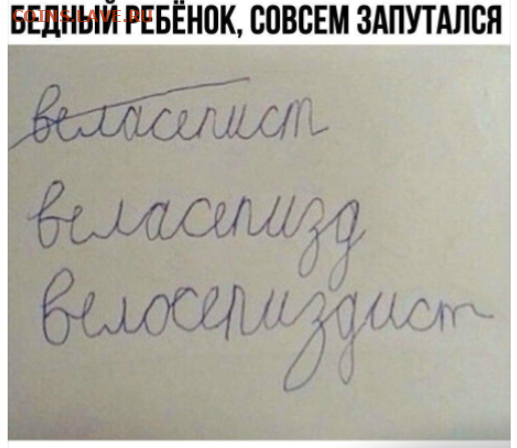 БЕДНЫЙ РЕБЁНОК, СОВСЕМ ЗАПУТАЛСЯ
COINS.LAVE.RU
веласепист
веласепизд
велосепиздист